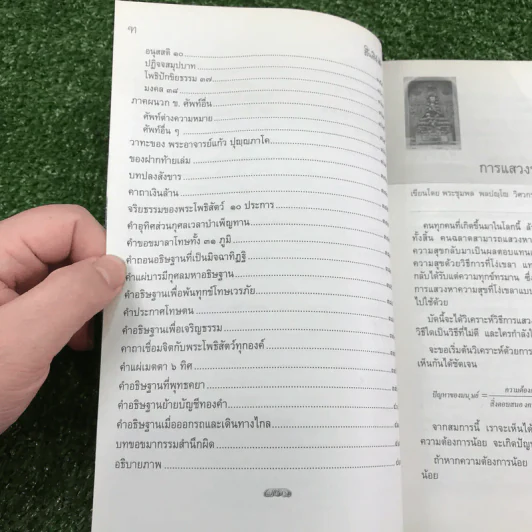 อนุสสติ ๑๐
ปฏิจจสมุปบาท
โพธิปักขิยธรรม ๓๗
มงคล ๓๘
ภาคผนวก ข. ศัพท์อื่น
ศัพท์ต่างความหมาย
ศัพท์อื่น ๆ
วาทะของ พระอาจารย์แก้ว ปุญฺญภาโค
ของฝากท้ายเล่ม
บทปลงสังขาร
คาถาเงินล้าน
จริยธรรมของพระโพธิสัตว์ ๑๐ ประการ
คำอุทิศส่วนกุศลเวลาบำเพ็ญทาน
คำขอขมาลาโทษทั้ง ๓๑ ภูมิ
คำถอนอธิษฐานที่เป็นมิจฉาทิฏฐิ
คำแผ่บารมีกุศลมหาอธิษฐาน
คำอธิษฐานเพื่อพ้นทุกข์โทษเวรภัย
คำประกาศโทษตน
คำอธิษฐานเพื่อเจริญธรรม
คาถาเชื่อมจิตกับพระโพธิสัตว์ทุกองค์
คำแผ่เมตตา ๖ ทิศ
คำอธิษฐานที่พุทธคยา
คำอธิษฐานย้ายบัญชีทองคำ
คำอธิษฐานเมื่อออกรถและเดินทางไกล
บทขอขมากรรมสำนึกผิด
อธิบายภาพ
การแสวงห
เขียนโดย พระชุมพล พลปญฺโญ
คนทุกคนที่เกิดขึ้นมาในโลกนี้
ทั้งสิ้น คนฉลาดสามารถแสวงหา
ความสุขกลับมาเป็นผลตอบแทน
ความสุขด้วยวิธีการที่โง่เขลา
กลับได้รับแต่ความทุกข์ทรมาน
การแสวงหาความสุขที่โง่เขลาแบบ
ไปใช้ด้วย
บัดนี้จะได้วิเคราะห์วิธีการแสวง
วิธีใดเป็นวิธีที่ไม่ดี และใครกำลัง
จะขอเริ่มต้นวิเคราะห์ด้วยการ
เห็นกันได้ชัดเจน
ปัญหาของมนุษย์ =
จากสมการนี้ เราจะเห็นได้
ความต้องการน้อย จะเกิดปัญ
ถ้าหากความต้องการน้อย
น้อย